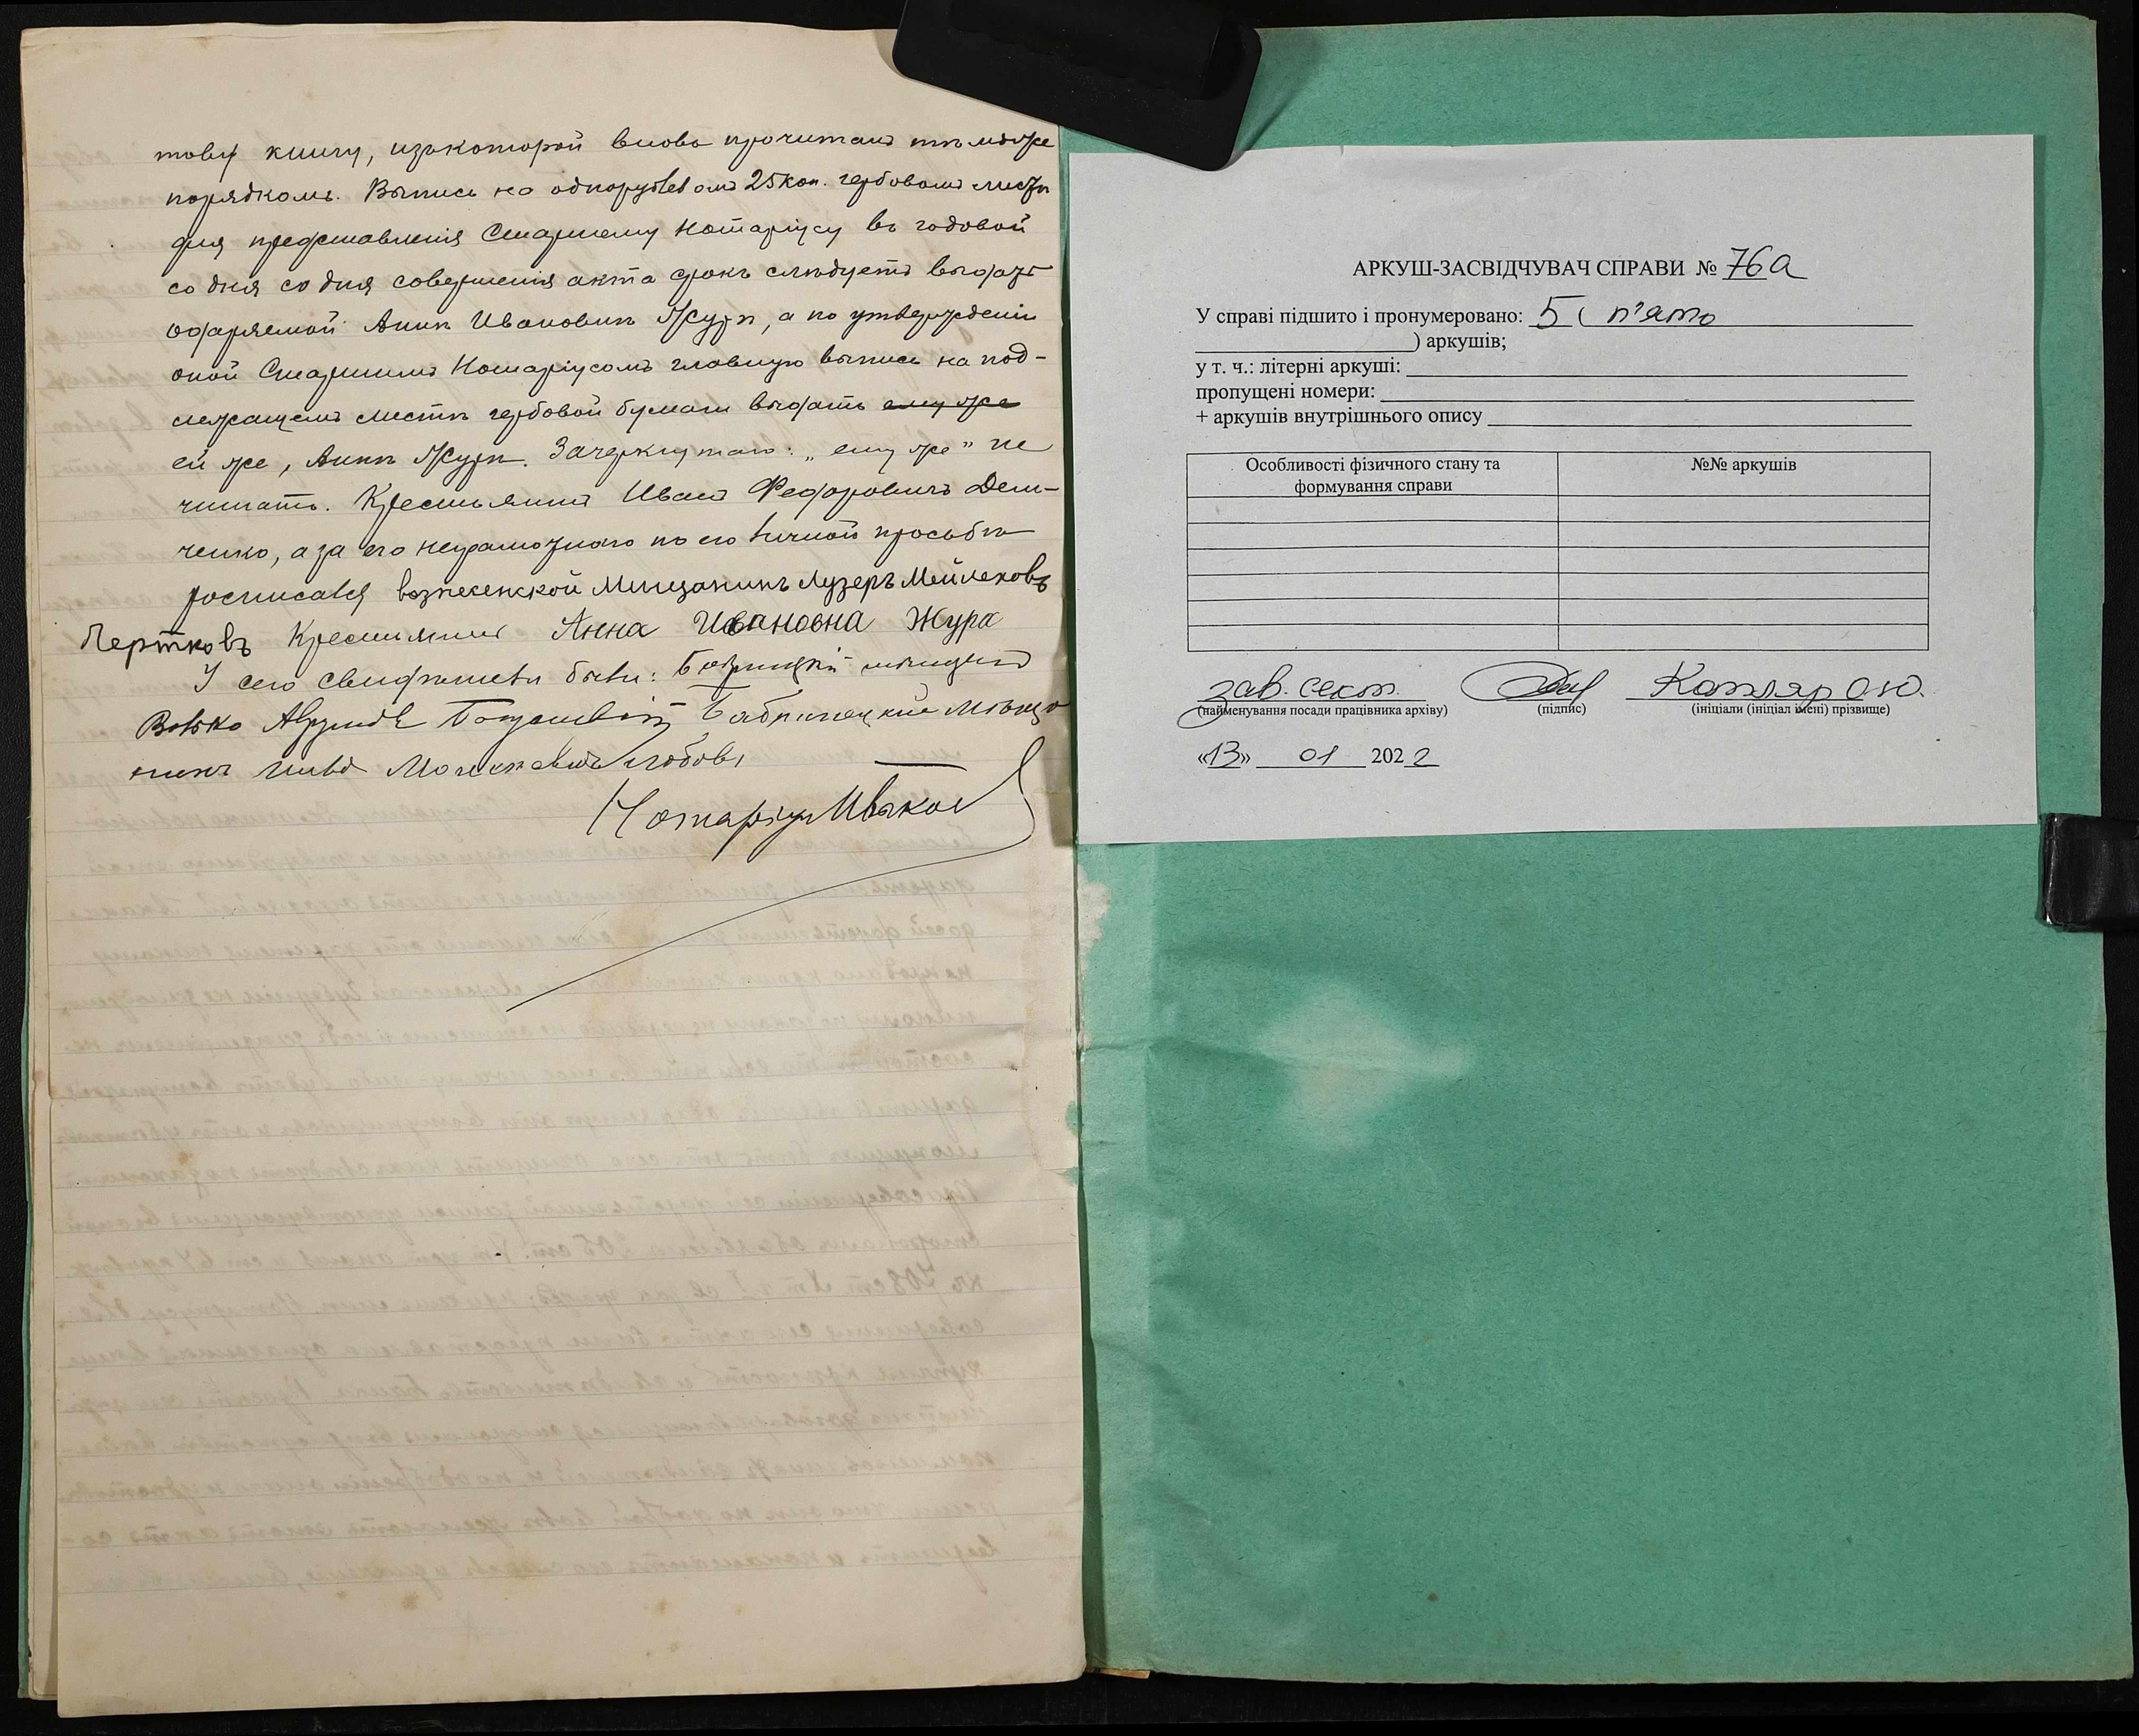 товую книгу, изъ которой вновь прочитанъ тѣмъ же
порядкомъ. Выпись на однорублевомъ 25 коп. гербовомъ листѣ
для представленія Старшему Нотаріусу въ годовой
со дня со дня совершенія акта срокъ слѣдуетъ выдать
одаряемой Аннѣ Ивановнѣ Журѣ, а по утвержденіи
оной Старшимъ Нотаріусомъ главную выпись на под-
лежащемъ листѣ гербовой бумаги выдать ему же
ей же, Аннѣ Журѣ. Зачеркнутаго: „ему же" не
читать. Крестьянинъ Иванъ Федоровичъ Дем-
ченко, а за его неграмотнаго по его личной просьбѣ
росписался вознесенской Мищанинъ Лузеръ Мейлековъ
Пертковъ Крестьянка Анна Ивановна Жура
У сего свидѣтели были: мѣщанинъ
Мовшовичъ
Нотаріусъ Ивъков
АРКУШ-ЗАСВІДЧУВАЧ СПРАВИ № 76а
У справі підшито і пронумеровано: 5 ( п'ять
) аркушів;
у т. ч.: літерні аркуші:
пропущені номери:
+ аркушів внутрішнього опису
Особливості фізичного стану та формування справи
№№ аркушів
зав. сект. Котляр О.Ю.
(найменування посади працівника архіву) (підпис) (ініціали (ініціал імені) прізвище)
«13» 01 2022